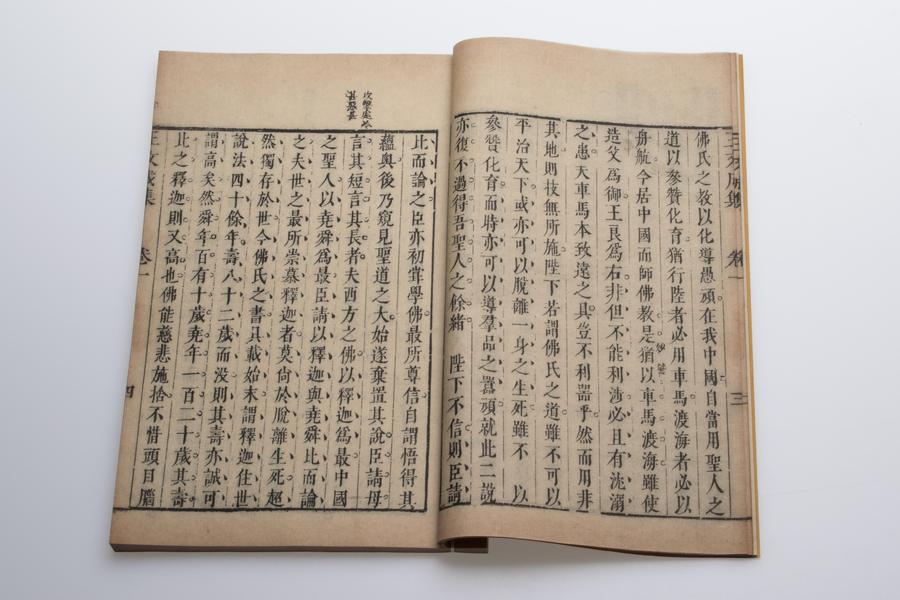 佛氏之教以化導愚頑在我中國自當用聖人之
道以參贊化育猶行陸者必用車馬渡海者必以
舟航今居中國而師佛教是猶以車馬渡海雖使
造父為御王良為右非但不能利涉必且有沈溺
之患夫車馬本致遠之具豈不利器乎然而用非
其地則技無所施陛下若謂佛氏之道雖不可以
平治天下或亦可以脫離一身之生死雖不 以
參贊化育而時亦可以導羣品之嚚頑就此二說
亦復不過得吾聖人之餘緒 陛下不信則臣請
比而論之臣亦初嘗學佛最所尊信自謂悟得其
蘊奧後乃窺見聖道之大始遂棄置其說臣請毋
言其短言其長者夫西方之佛以釋迦為最中國
之聖人以堯舜為最臣請以釋迦與堯舜比而論
之夫世之最所崇慕釋迦者莫尚於脫離生死超
然獨存於世今佛氏之書具載始末謂釋迦住世
說法四十餘年壽八十二歲而沒則其壽亦誠可
謂高矣然舜年百有十歲堯年一百二十歲其壽
比之釋迦則又高也佛能慈悲施捨不惜頭目腦
卷一
四
三